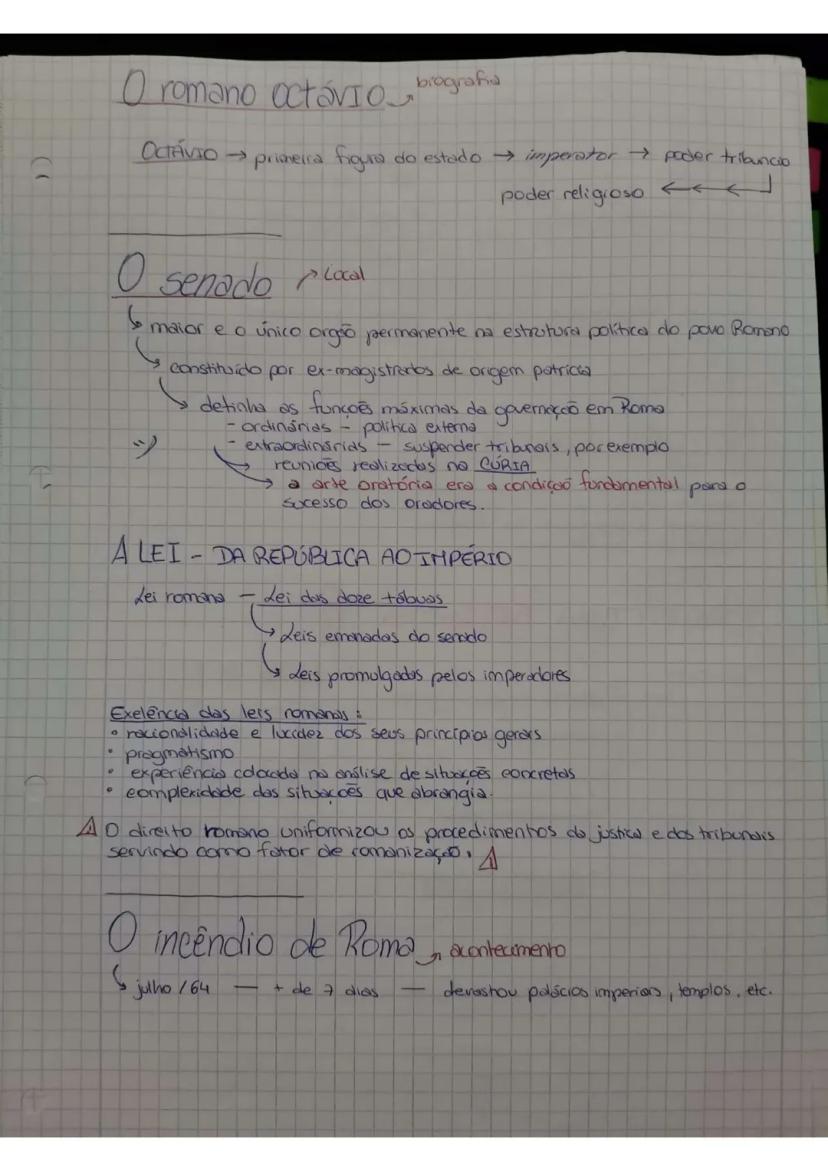 O romano octávio → biografia
OCTÁVIO → primeira figura do estado → imperator → poder tribuncio
poder religioso ← ← ←
O senado ↗ Local
↳ maior e o único orgão permanente na estrutura política do povo Romano
↳ constituído por ex-magistrados de origem patrícia
↳ detinha as funções máximas da governação em Roma
- ordinárias - política externa
- extraordinárias - suspender tribunais, por exemplo
→ reuniões realizadas na CÚRIA
→ a arte oratória era a condição fundamental para o
sucesso dos oradores.
A LEI - DA REPÚBLICA AO IMPÉRIO
Lei romana - Lei das doze tábuas
↳ Leis emanadas do senado
↳ Leis promulgadas pelos imperadores
Exelência das leis romanas:
• racionalidade e lucidez dos seus princípios gerais
• pragmatismo
• experiência colocada na análise de situações concretas
• complexidade das situações que abrangia.
⚠ O direito romano uniformizou os procedimentos da justiça e dos tribunais
servindo como fator de romanização. ⚠
O incêndio de Roma → acontecimento
↳ julho / 64 — + de 7 dias — devastou palácios imperiais, templos, etc.